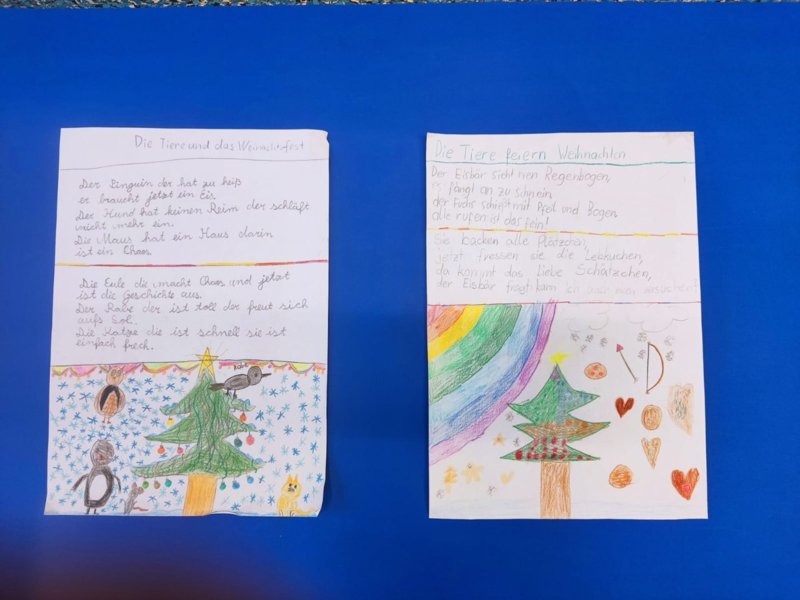 Die Tiere und das Weihnachtsfest
Der Pinguin der hat zu heiß
er braucht jetzt ein Eis.
Der Hund hat keinen Reim der schläft
nicht mehr ein.
Die Maus hat ein Haus darin
ist ein Chaos.
Die Eule die macht Chaos und jetzt
ist die Geschichte aus.
Der Rabe der ist toll der freut sich
aufs
Die Katze die ist schnell sie ist
einfach frech.
Die Tiere feiern Weihnachten
Der Eisbär sieht nen Regenbogen,
er fängt an zu schrein,
der Fuchs schießt mit Pfeil und Bogen
alle rufen: ist das fein!
Sie backen alle Plätzchen,
jetzt fressen sie die Lebkuchen,
da kommt das liebe Schätzchen,
der Eisbär fragt: kann ich auch mal versuchen?